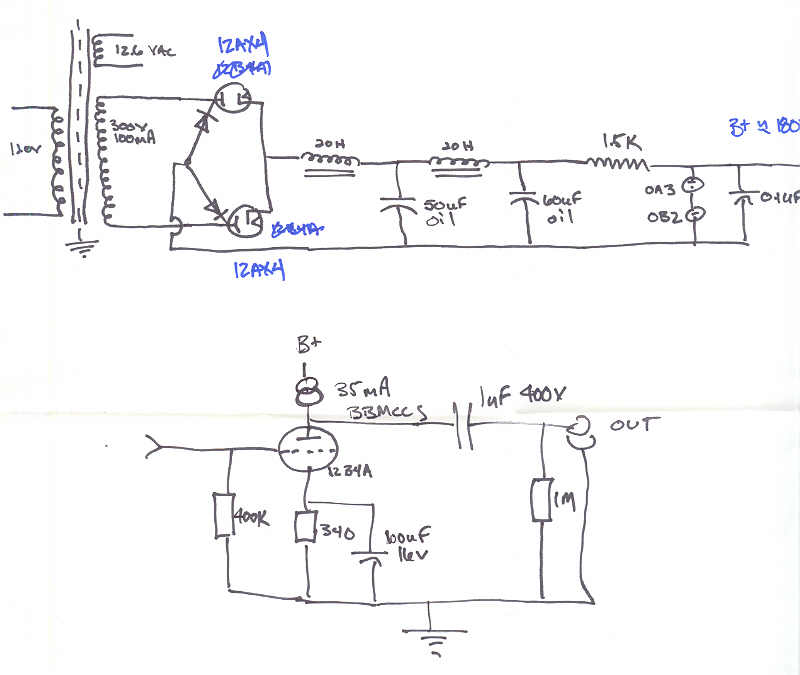 12AX4
12.6 VAC
120V
300V
100mA
20H
20H
1.5K
B+ ≈ 180
50uF
oil
60uF
oil
OA3
OB2
0.1uF
12AX4
B+
35mA
BBMCCS
1uF 400V
OUT
12B4A
400K
340
100uF
16V
1M